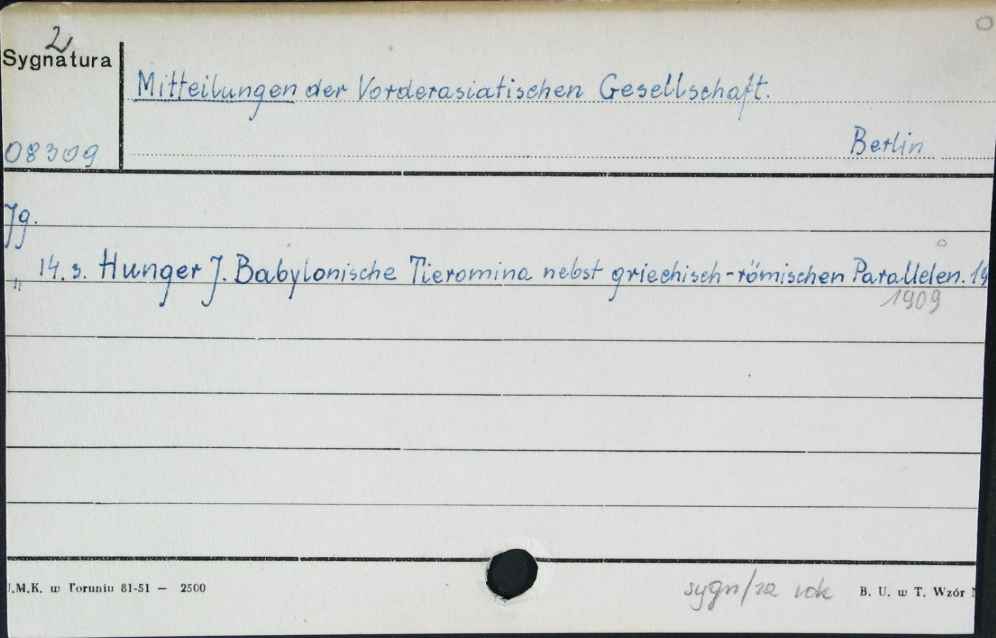 2
Sygnatura
Mitteilungen der Vorderasiatischen Gesellschaft.
08309
Berlin
Jg.
14. 3. Hunger J. Babylonische Tieromina nebst griechisch-römischen Parallelen. 19
1909
U.M.K. w Toruniu 81-51 — 2500
sygn/za rok
B. U. w T. Wzór